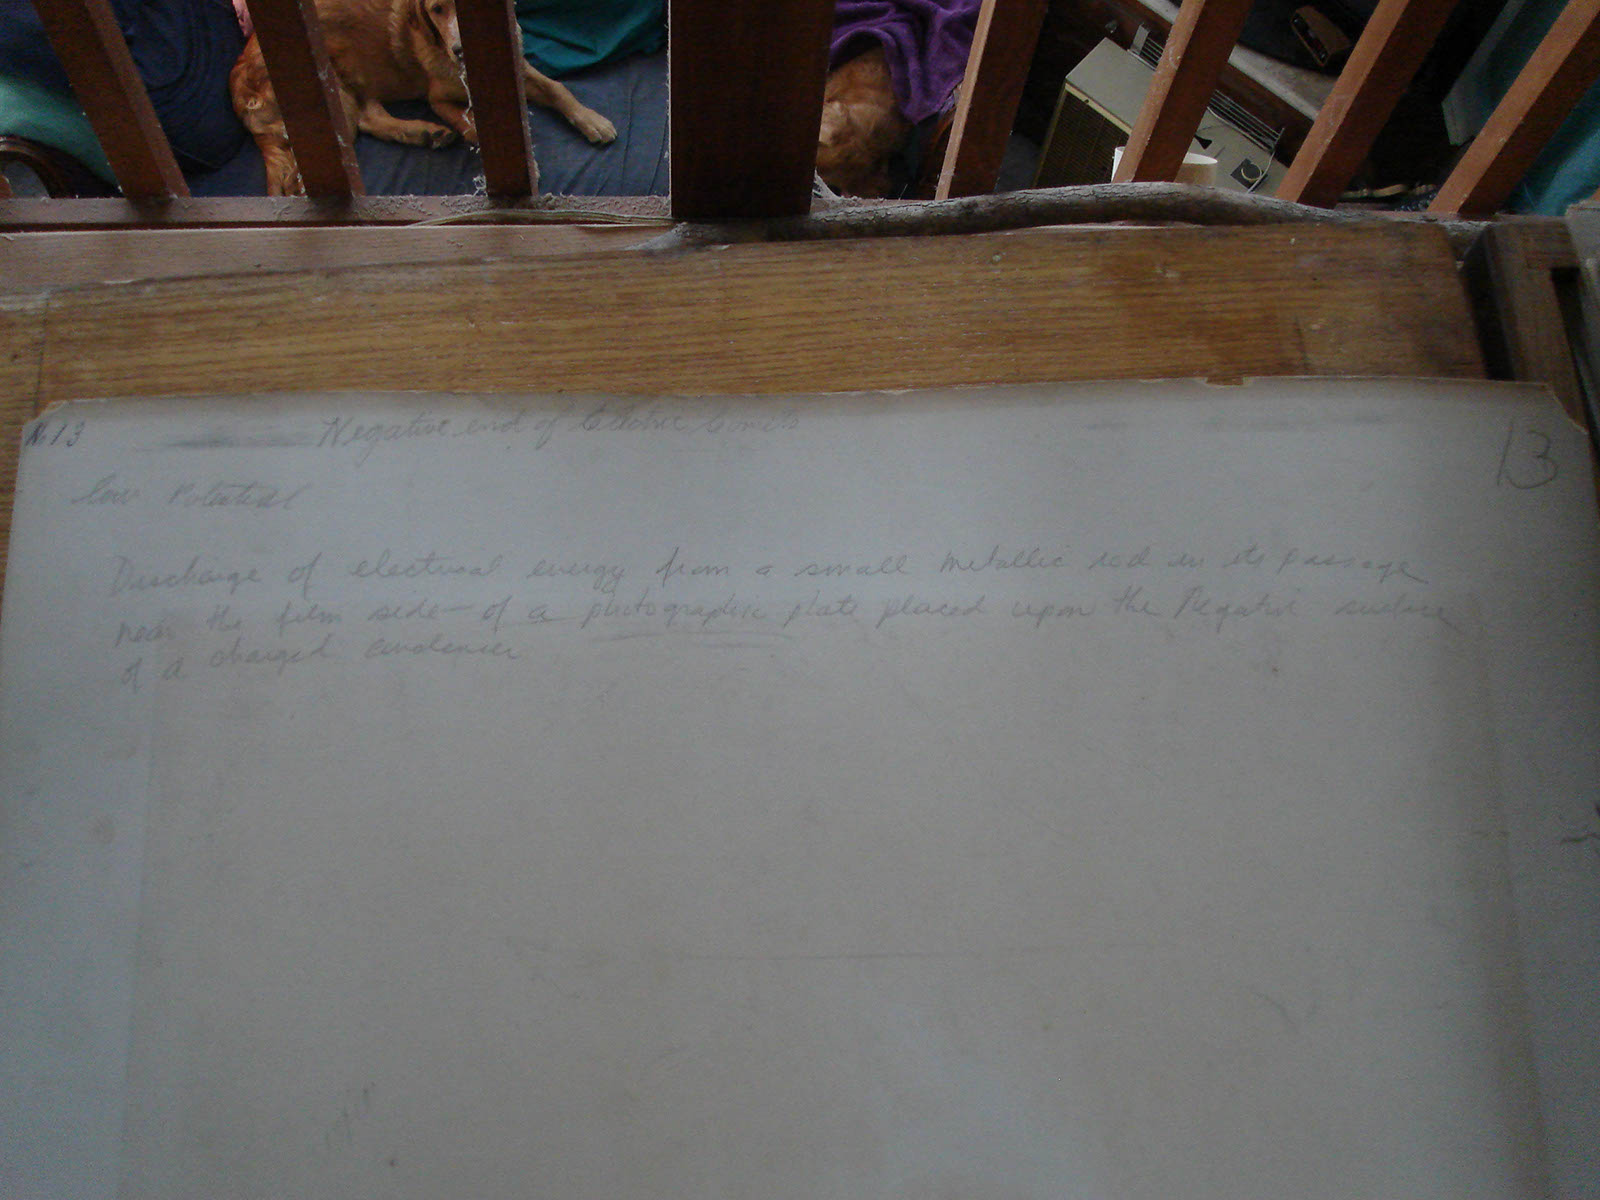 No 13
Negative end of Electric Comets
13
Low Potential
Discharge of electrical energy from a small metallic rod in its passage
near the film side of a photographic plate placed upon the Negative surface
of a charged condenser